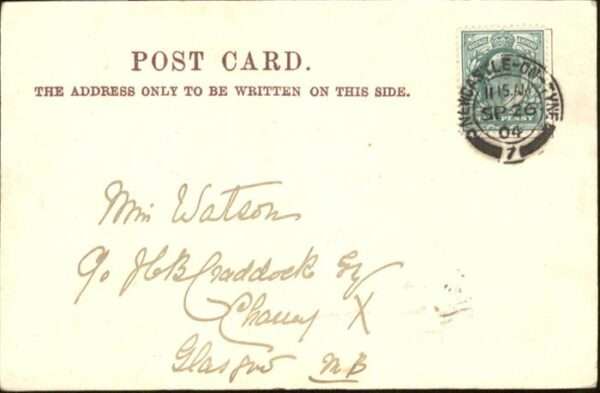 POST CARD.
THE ADDRESS ONLY TO BE WRITTEN ON THIS SIDE.
NEWCASTLE-ON-TYNE
11 15 AM
SP 26
04
7
PENNY
Miss Watson
c/o J C B Craddock Esq
X
Glasgow NB